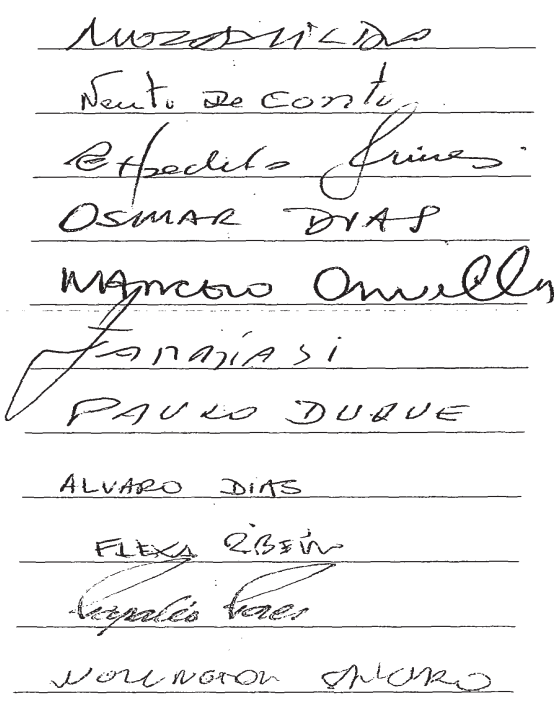 MOZARILDO
Neuto De Conto
Expedito Júnior
OSMAR DIAS
MARCELO Crivella
PAULO DUQUE
ALVARO DIAS
FLEXA RIBEIRO
Papaléo Paes
WELLINGTON SALGADO